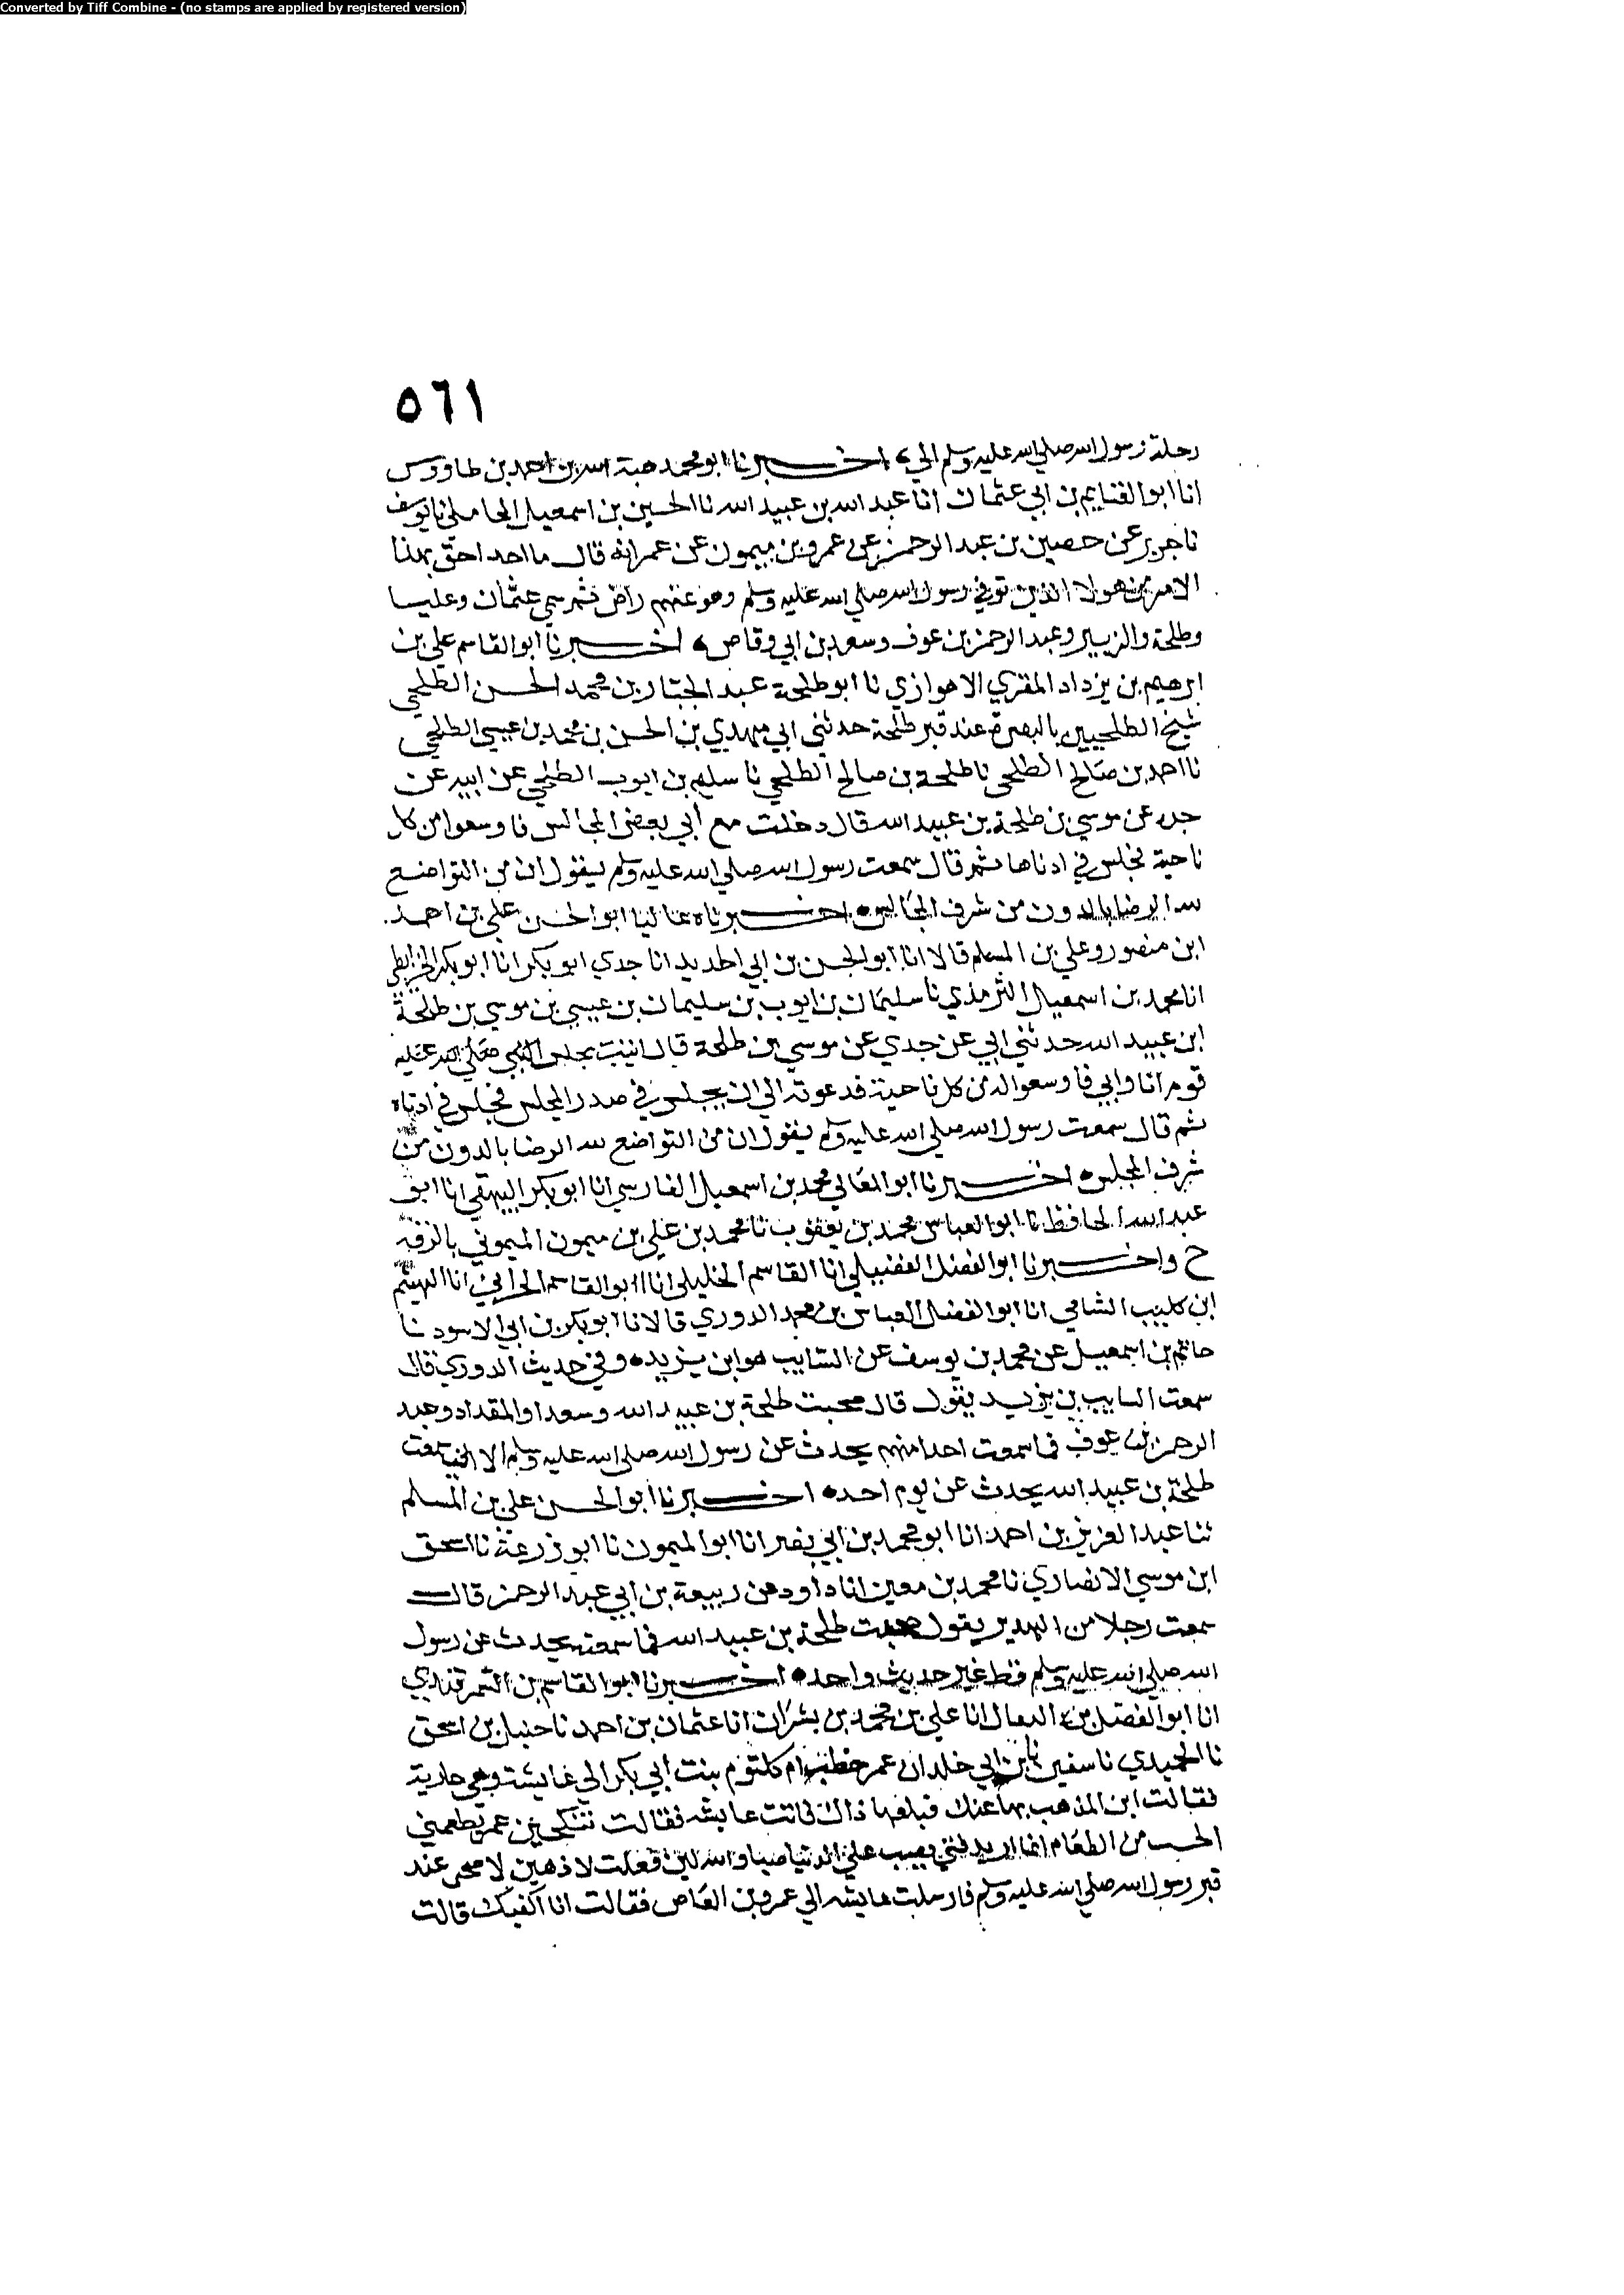 Converted by Tiff Combine - (no stamps are applied by registered version)
٥٦١
رحلة رسول الله صلي الله عليه وسلم الي اخبرنا ابو محمد هبة الله بن احمد بن طاووس
انا ابو الغنايم بن ابي عثمان انا عبد الله بن عبيد الله نا الحسين بن اسمعيل المحاملي نا يوسف
نا جرير عن حصين بن عبد الرحمن عن عمرو بن ميمون عن عمر انه قال ما احد احق بهذا
الامر من هولا الذين توفي رسول الله صلي الله عليه وسلم وهو عنهم راض ثم سمي عثمان وعليا
وطلحة والزبير وعبد الرحمن بن عوف وسعد بن ابي وقاص اخبرنا ابو القاسم علي بن
ابرهيم بن يزداد المقري الاهوازي نا ابو طلحة عبد الجبار بن محمد الحسن الطلحي
شيخ الطلحيين بالبصرة عند قبر طلحة حدثني ابي مهدي بن الحسن بن محمد بن عيسي الطلحي
نا احمد بن صالح الطلحي نا طلحة بن صالح الطلحي نا سليم بن ايوب الطلحي عن ابيه عن
جده عن موسي بن طلحة بن عبيد الله قال دخلت مع أبي بعض المجالس فاوسعوا من كل
ناحية فجلس في ادناها ثم قال سمعت رسول الله صلي الله عليه وسلم يقول ان من التواضع
لله الرضا بالدون من شرف المجالس اخبرناه عاليا ابو الحسن علي بن احمد
ابن منصور وعلي بن المسلم قالا انا ابو الحسن بن ابي الحديد انا جدي ابو بكر انا ابو بكر الخرايطي
انا محمد بن اسمعيل الترمذي نا سليمان بن ايوب بن سليمان بن عيسي بن موسي بن طلحة
ابن عبيد الله حدثني ابي عن جدي عن موسي بن طلحة قال اتيت مجلس النبي صلي الله عليه
قوم انا وابي فاوسعوا له من كل ناحية فدعوته الي ان يجلس في صدر المجلس فجلس في ادناه
ثم قال سمعت رسول الله صلي الله عليه وسلم يقول ان من التواضع لله الرضا بالدون من
شرف المجلس اخبرنا ابو المعالي محمد بن اسمعيل الفارسي انا ابو بكر البيهقي انا ابو
عبد الله الحافظ نا ابو العباس محمد بن يعقوب نا محمد بن علي بن ميمون الميموني بالرقة
ح واخبرنا ابو الفضل الفضيلي انا القاسم الخليلي انا ابو القاسم الخزاعي انا الهيثم
ابن كليب الشامي انا ابو الفضل العباس بن محمد الدوري قالا نا ابو بكر بن ابي الاسود نا
حاتم بن اسمعيل عن محمد بن يوسف عن السايب هو ابن يزيد وفي حديث الدوري قال
سمعت السايب بن يزيد يقول قال صحبت طلحة بن عبيد الله وسعدا والمقداد وعبد
الرحمن بن عوف فما سمعت احدا منهم يحدث عن رسول الله صلي الله عليه وسلم الا اني سمعت
طلحة بن عبيد الله يحدث عن يوم احد اخبرنا ابو الحسن علي بن المسلم
ثنا عبد العزيز بن احمد انا ابو محمد بن ابي نصر انا ابو الميمون نا ابو زرعة نا اسحق
ابن موسي الانصاري نا محمد بن معين انا داود عن ربيعة بن ابي عبد الرحمن قال
سمعت رجلا من الهدير يقول صحبت طلحة بن عبيد الله فما سمعته يحدث عن رسول
الله صلي الله عليه وسلم قط غير حديث واحد اخبرنا ابو القاسم بن السمرقندي
انا ابو الفضل بن البقال انا علي بن محمد بن بشران انا عثمان بن احمد نا حنبل بن اسحق
نا الحميدي نا سفين نا ابن ابي خلد ان عمر خطب ام كلثوم بنت ابي بكر الي عايشة وهي جارية
فقالت اين المذهب بها عنك فبلغها ذاك فاتت عايشه فقالت تنكحيني عمر يطعمني
الخشب من الطعام انما اريد فتي يصب علي الدنيا صبا والله لين فعلت لاذهبن لاصحى عند
قبر رسول الله صلي الله عليه وسلم فارسلت عايشه الي عمرو بن العاص فقالت انا اكفيك قالت